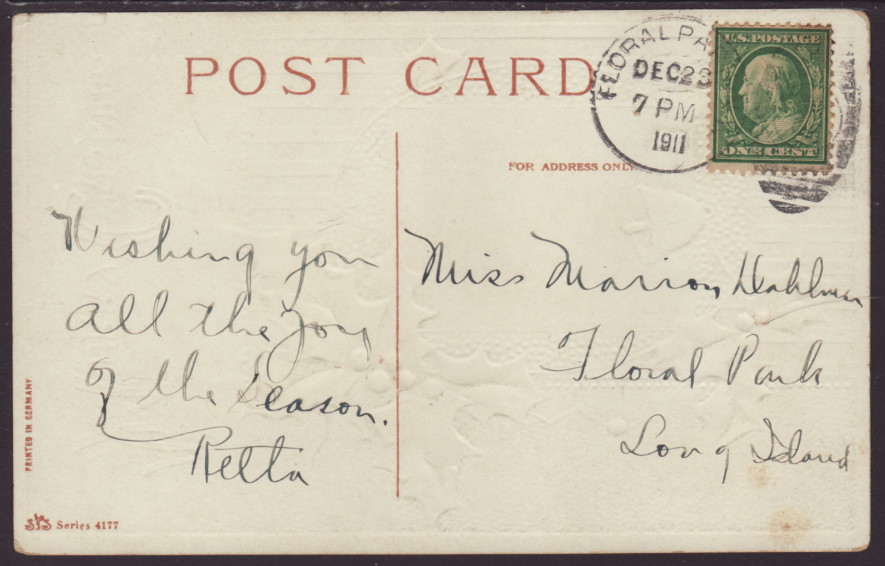 POST CARD
FLORAL PA
DEC 23
7 PM
1911
U.S. POSTAGE
ONE CENT
FOR ADDRESS ONLY
Wishing you
all the Joy
of the Season.
Retta
Miss Marion Dahlman
Floral Park
Long Island
PRINTED IN GERMANY
Series 4177